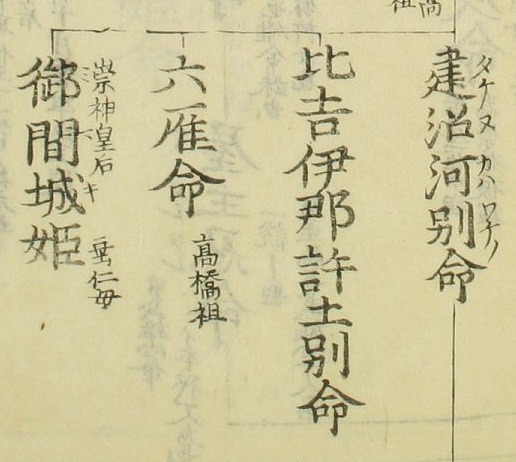 建沼河別命
タケヌカハワケノ
比古伊那許士別命
六雁命
高橋祖
御間城姫
崇神皇后
キ
垂仁母